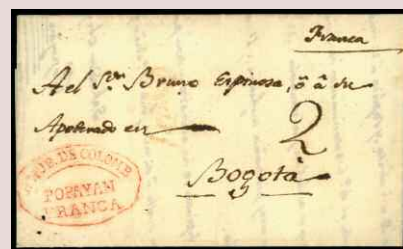 Franca
Al Sor. Bruno Espinosa, ô â su
Apoderado en
2
Bogotà
REPUB. DE COLOMB.
POPAYAN
FRANCA